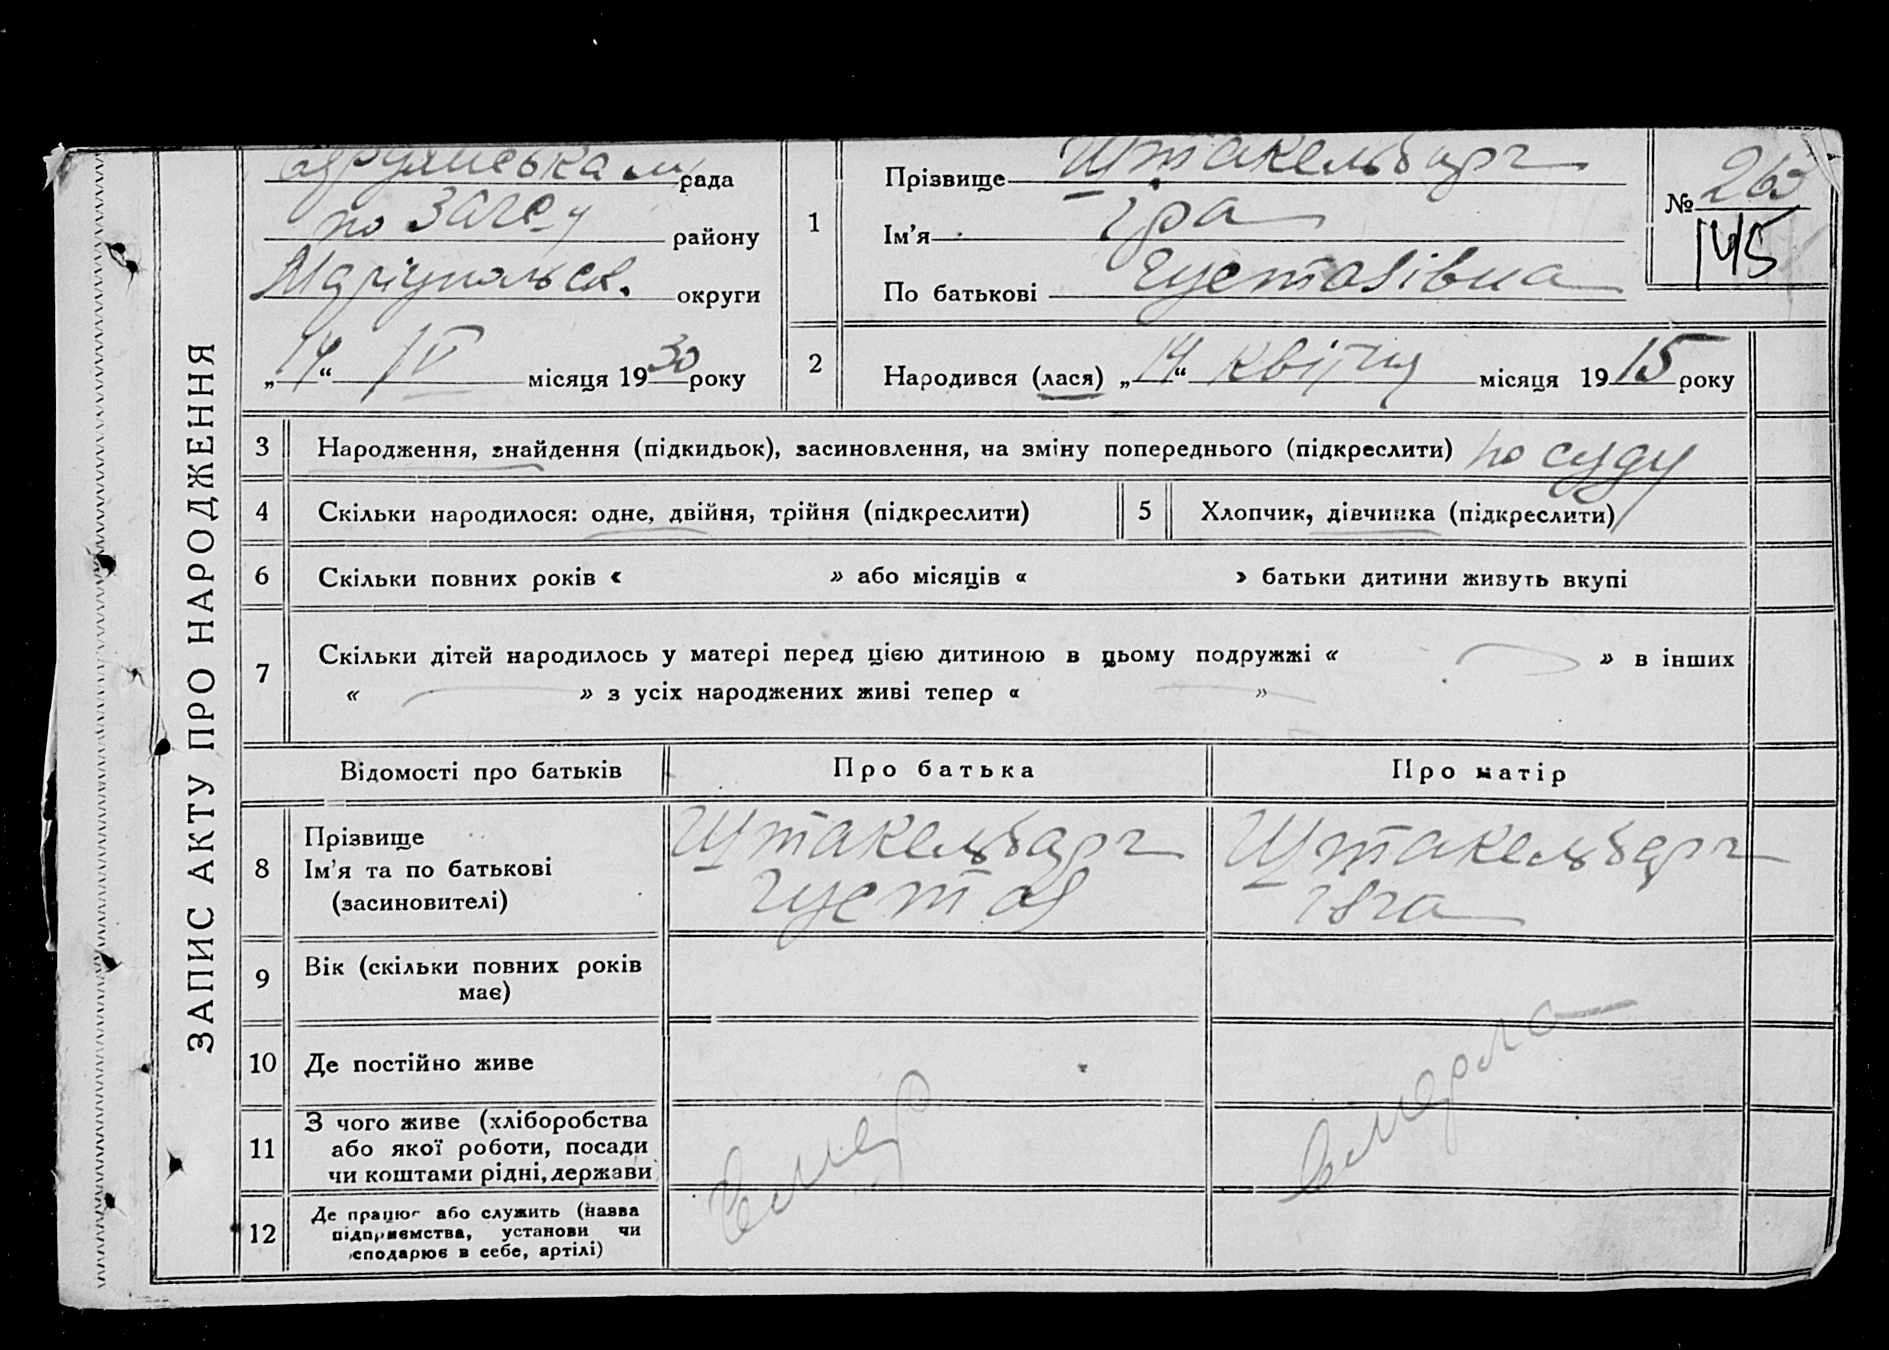 ЗАПИС АКТУ ПРО НАРОДЖЕННЯ
рада
по Загсу району
Маріупольськ. округи
„14“ IV місяця 1930 року
1
Прізвище Штакельберг
Ім'я Іра
По батькові Густавівна
№ 265
145
2
Народився (лася) „14“ квітня місяця 1915 року
3 Народження, знайдення (підкидьок), засиновлення, на зміну попереднього (підкреслити) по суду
4 Скільки народилося: одне, двійня, трійня (підкреслити)
5 Хлопчик, дівчинка (підкреслити)
6 Скільки повних років « » або місяців « » батьки дитини живуть вкупі
7 Скільки дітей народилось у матері перед цією дитиною в цьому подружжі « » в інших
« » з усіх народжених живі тепер « »
Відомості про батьків Про батька Про матір
8 Прізвище
Ім'я та по батькові
(засиновителі)
Штакельберг
Густав
Штакельберг
9 Вік (скільки повних років
має)
10 Де постійно живе
11 З чого живе (хліборобства
або якої роботи, посади
чи коштами рідні, держави
12 Де працює або служить (назва
підприємства, установи чи
сподарює в себе, артілі)
вмер
вмерла